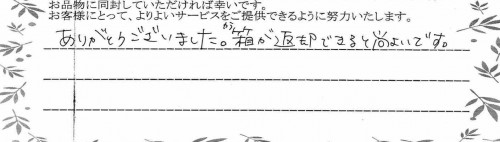 お品物に同封していただければ幸いです。
お客様にとって、よりよいサービスをご提供できるように努力いたします。
ありがとうございました。空箱が返却できると尚よいです。